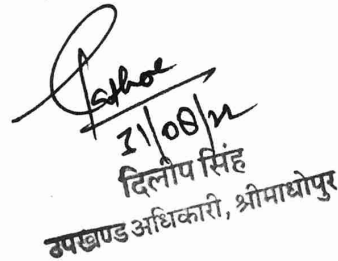 31/08/22
दिलीप सिंह
उपखण्ड अधिकारी, श्रीमाधोपुर